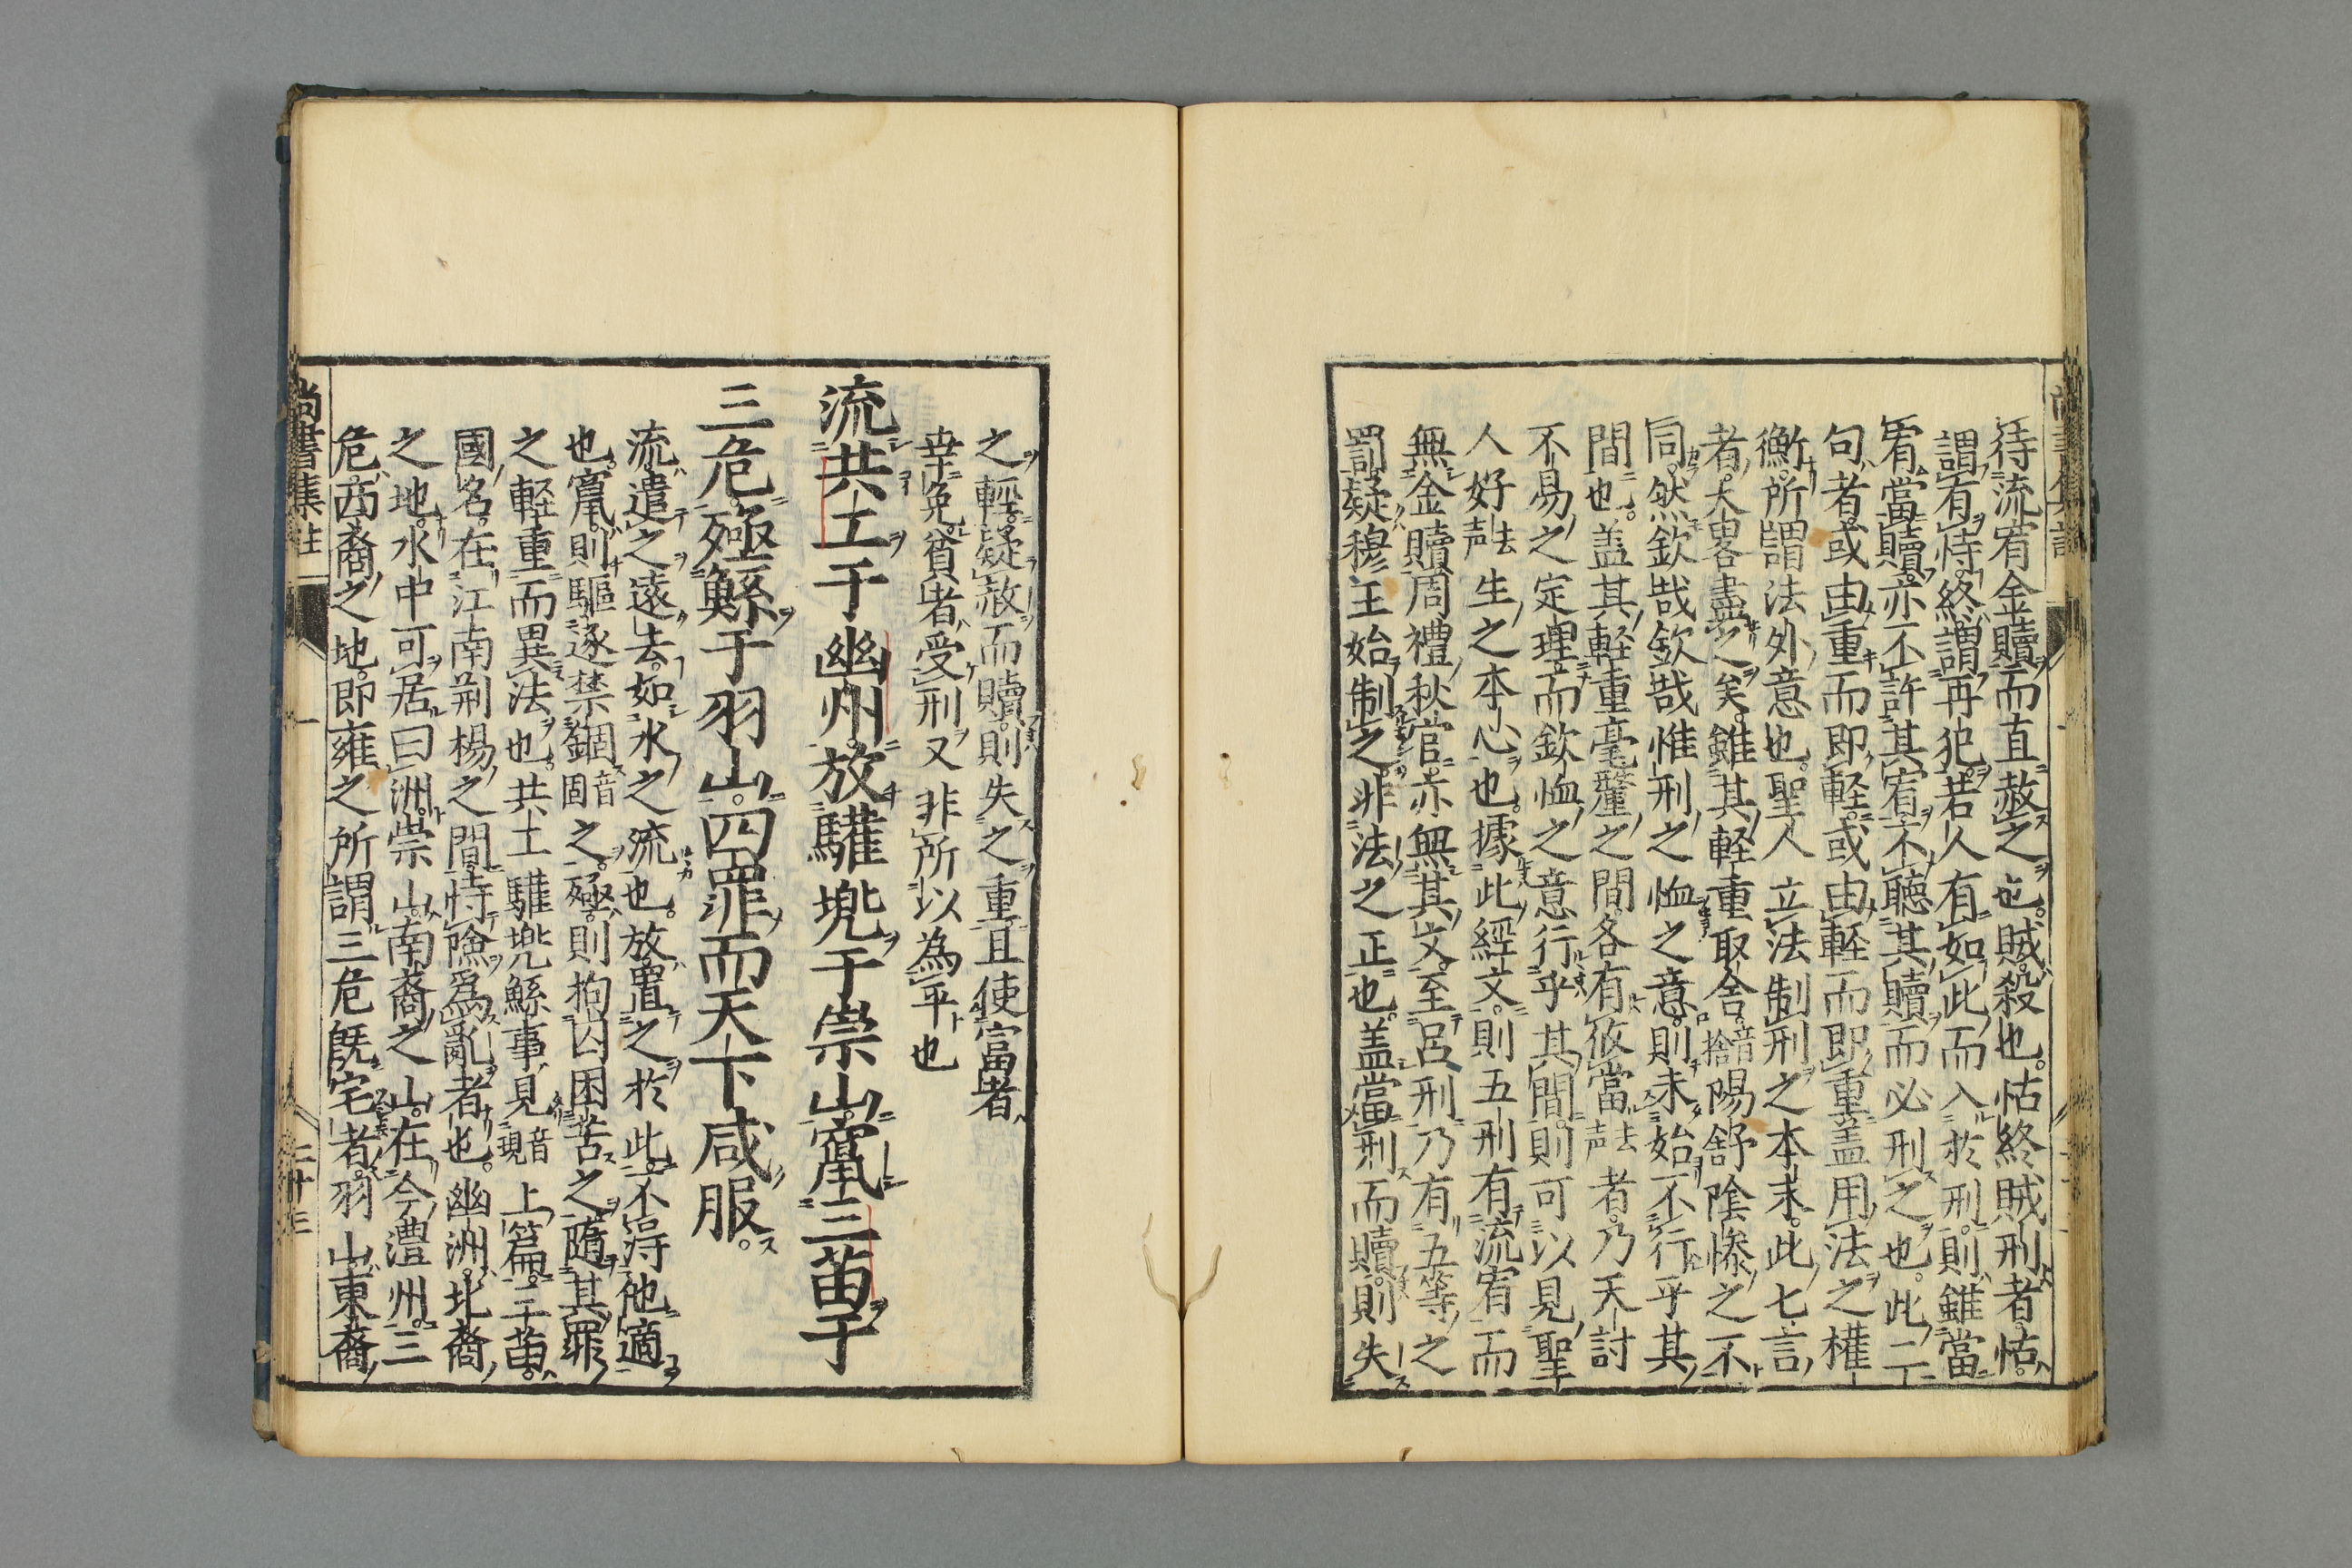 待流宥金贖而直赦之也。賊殺也。怙終賊刑者。怙
謂有恃。終謂再犯。若人有如此而入於刑。則雖當
宥當贖。亦不許其宥。不聽其贖而必刑之也。此二
句者。或由重而即輕。或由輕而即重。盖用法之權
衡。所謂法外意也。聖人立法制刑之本末。此七言
者。大畧盡之矣。雖其輕重取舍音捨陽舒隂慘之不
同。然欽哉欽哉惟刑之恤之意。則未始不行乎其
間也。盖其輕重毫釐之間。各有攸當去声者。乃天討
不易之定理。而欽恤之意行乎其間。則可以見聖
人好去声生之本心也。據此經文。則五刑有流宥而
無金贖。周禮秋官。亦無其文。至呂刑乃有五等之
罰疑穆王始制之。非法之正也。盖當刑而贖。則失
之輕。疑赦而贖。則失之重。且使富者
幸免。貧者受刑又非所以為平也
流共工于幽州。放驩兠于崇山。竄三苗于
三危。殛鯀于羽山。四罪而天下咸服。
流。遣之遠去。如水之流也。放。置之於此。不得他適
也。竄。則驅逐禁錮音固之。殛。則拘囚困苦之。隨其罪
之輕重而異法也。共工驩兠鯀事見音現上篇。三苗。
國名。在江南荆楊之間。恃險爲亂者也。幽洲。北裔
之地。水中可居曰洲。崇山。南裔之山。在今澧州。三
危。西裔之地。即雍之所謂三危旣宅者。羽山。東裔
尚書集註 一 二十三